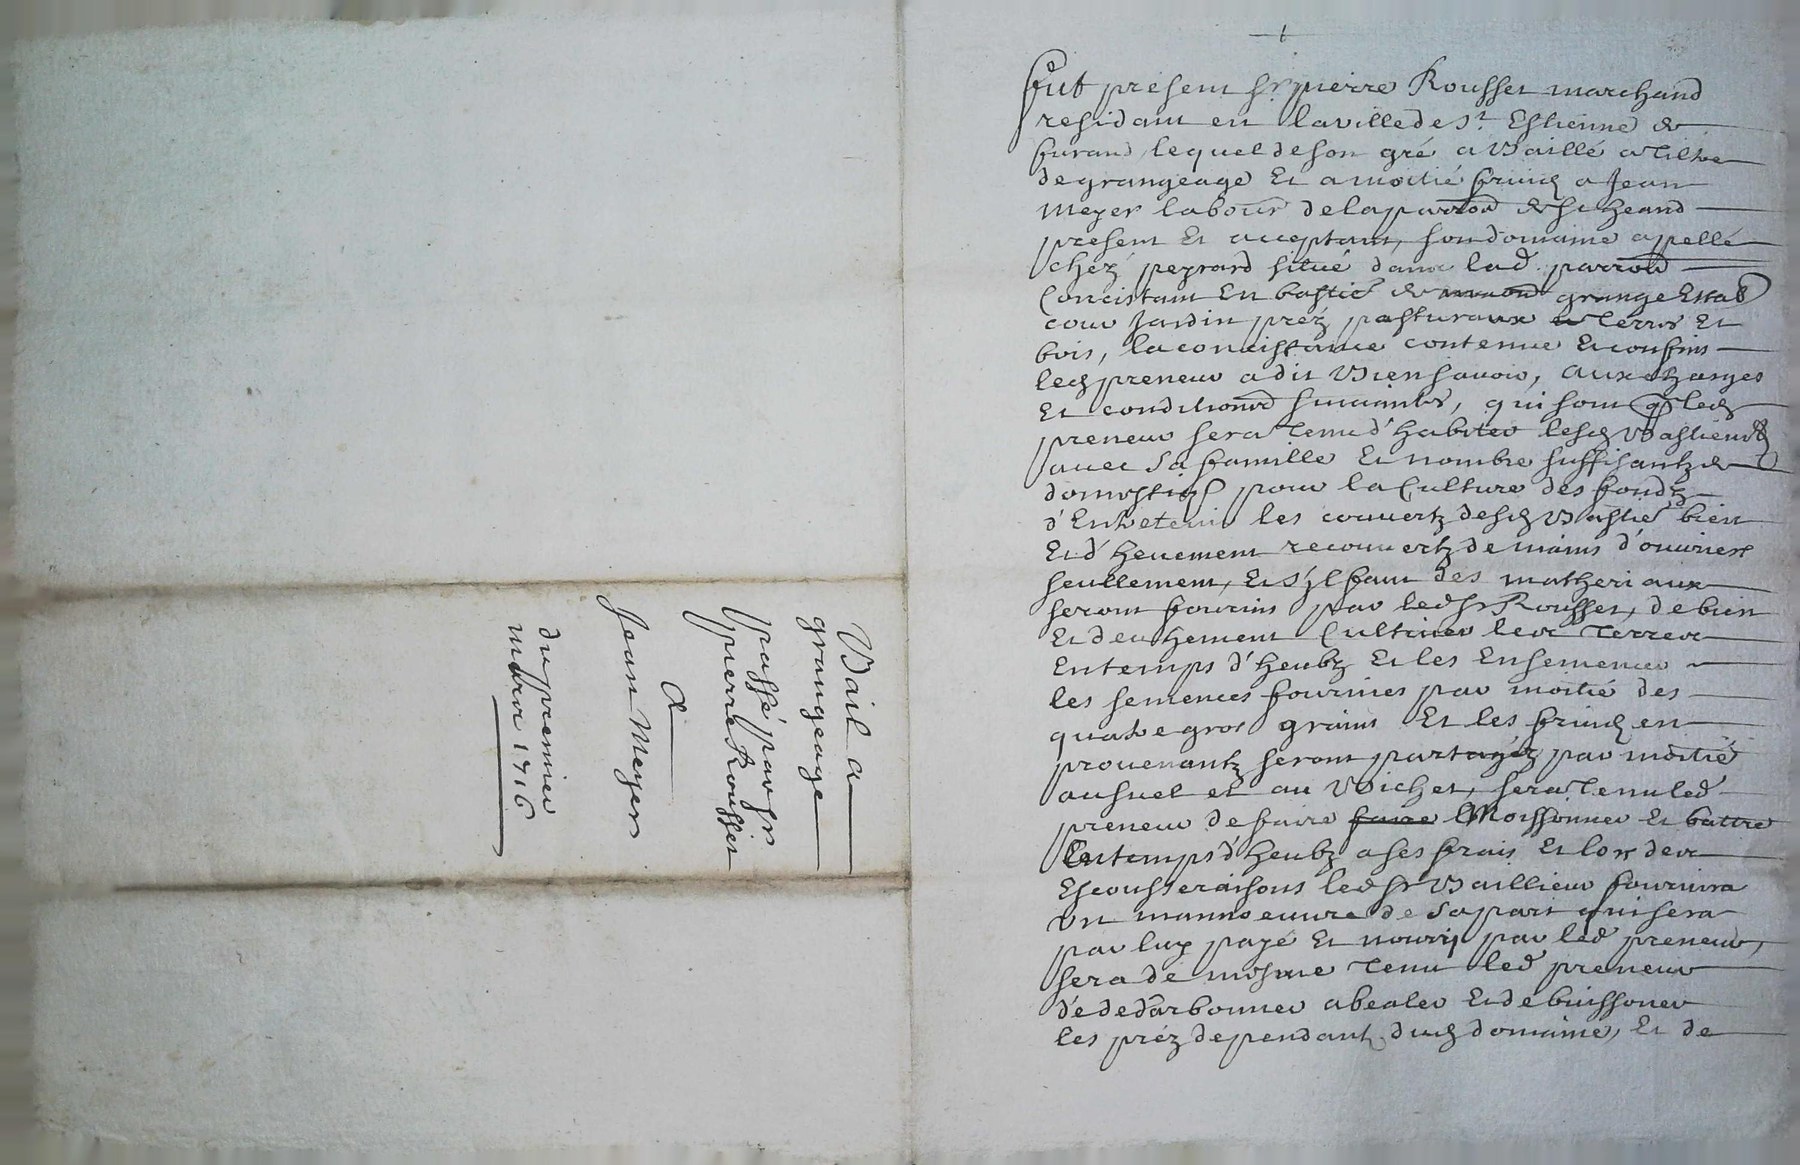 Bail a
grangeage
passé par sr
pierre Rousset
A
Jean Meyer
du premier
mars 1716
Fut present sr pierre Rousset marchand
residant en la ville de St Estienne de
furand, lequel de son gré a Baillé a Tiltre
de grangeage Et a moitié fruicts a Jean
Meyer labour de la parroa de st heand
present Et acceptant, son domaine appellé
chéz peyrard situé dans lad parroa
Concistant En bastie de grange Estab
cour Jardin préz pasturaux Terres Et
bois, la concistance contenue Et confins
led preneur a dit Bien savoir, aux charges
Et conditions suivantes, qui sont q led
preneur sera Tenu d'habiter lesd Bastiends
avec sa famille Et nombre suffisantz de
domestiq pour la Culture des fondz
d'Entretenir les couvertz desd Bastie bien
Et d'heuement recouvertz de mains d'ouvriers
seullement, Et s'jl faut des matheriaux
seront fournis par led sr Rousset, de bien
Et deuhement Cultiver les Terres
En temps d'heubz Et les Ensemencer
les semences fournies par moitié des
quatre gros grains Et les fruicts en
provenantz seront partagéz par moitié
au suel et au Bichet, sera Tenu led
preneur de faire Moissonner Et battre
En temps d'heubz a ses frais Et lors des
Escousseraisons led sr Baillieur fournira
un mannoeuvre de sa part qui sera
par luy payé Et nourry par led preneur,
sera de mesme Tenu led preneur
de dedarbonner abealer Et debuissoner
les préz dependantz dud domaine, Et de